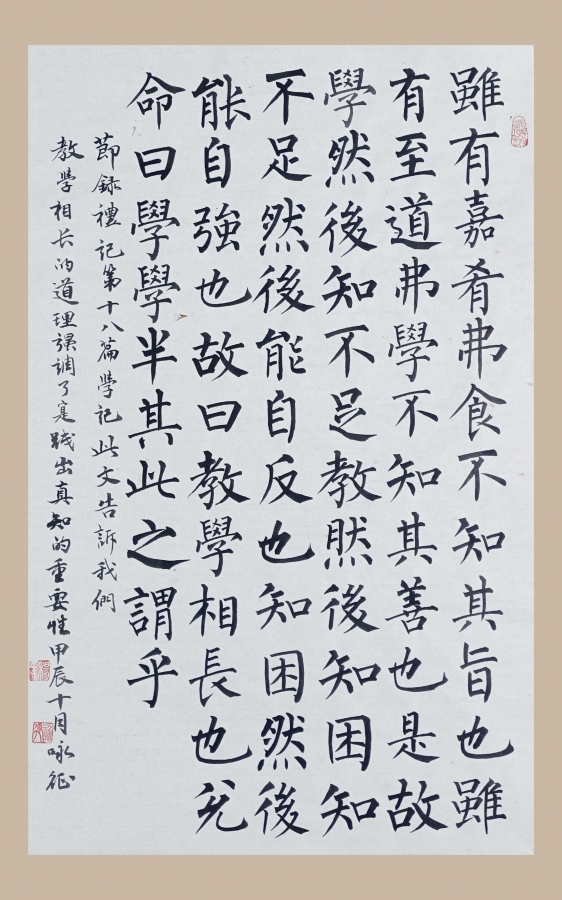 雖有嘉肴弗食不知其旨也雖
有至道弗學不知其善也是故
學然後知不足教然後知困知
不足然後能自反也知困然後
能自強也故曰教學相長也兌
命曰學學半其此之謂乎
節録禮記第十八篇學記此文告訴我們
教學相长的道理强調了寔踐出真知的重要性甲辰十月咏征